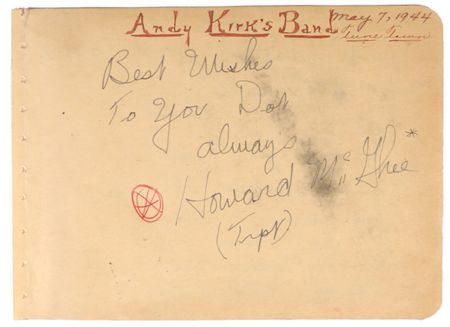 Andy Kirk's Band
May 7, 1944
Tune Town
Best Wishes
To You Dot
always
Howard McGhee*
(Trpt)